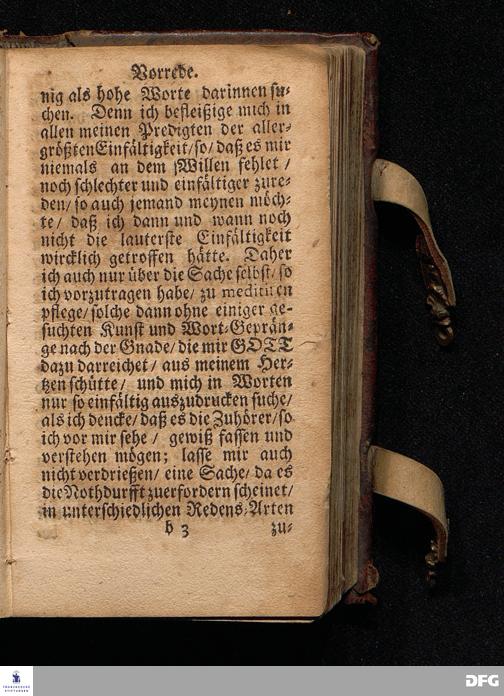 Vorrede.
nig als hohe Worte darinnen su-
chen. Denn ich befleißige mich in
allen meinen Predigten der aller-
größten Einfältigkeit/ so/ daß es mir
niemals an dem Willen fehlet/
noch schlechter und einfältiger zure-
den/ so auch jemand meynen möch-
te/ daß ich dann und wann noch
nicht die lauterste Einfältigkeit
wircklich getroffen hätte. Daher
ich auch nur über die Sache selbst/ so
ich vorzutragen habe/ zu meditiren
pflege/ solche dann ohne einiger ge-
suchten Kunst und Wort-Geprän-
ge nach der Gnade/ die mir GOTT
dazu darreichet/ aus meinem Her-
tzen schütte/ und mich in Worten
nur so einfältig auszudrucken suche/
als ich dencke/ daß es die Zuhörer/ so
ich vor mir sehe/ gewiß fassen und
verstehen mögen; lasse mir auch
nicht verdrießen/ eine Sache/ da es
die Nothdurfft zuerfordern scheinet/
in unterschiedlichen Redens-Arten
b 3 zu-
FRANCKESCHE
STIFTUNGEN
DFG